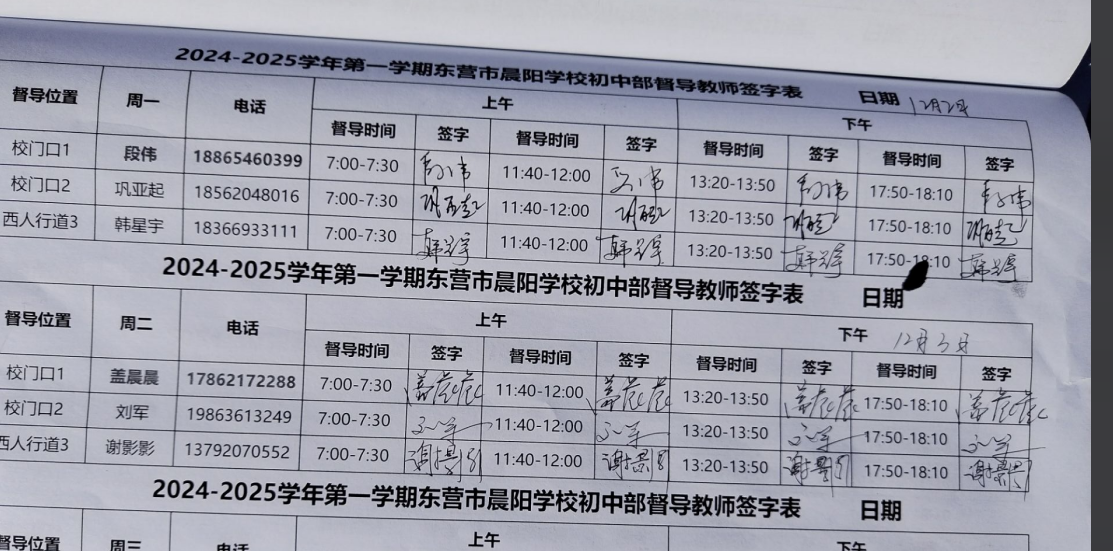 2024-2025学年第一学期东营市晨阳学校初中部督导教师签字表 日期 12月2日
督导位置 周一 电话 上午 下午
督导时间 签字 督导时间 签字 督导时间 签字 督导时间 签字
校门口1 段伟 18865460399 7:00-7:30 段伟 11:40-12:00 段伟 13:20-13:50 段伟 17:50-18:10 段伟
校门口2 巩亚起 18562048016 7:00-7:30 巩亚起 11:40-12:00 巩亚起 13:20-13:50 巩亚起 17:50-18:10 巩亚起
西人行道3 韩星宇 18366933111 7:00-7:30 韩星宇 11:40-12:00 韩星宇 13:20-13:50 韩星宇 17:50-18:10 韩星宇
2024-2025学年第一学期东营市晨阳学校初中部督导教师签字表 日期
督导位置 周二 电话 上午 下午 12月3日
督导时间 签字 督导时间 签字 督导时间 签字 督导时间 签字
校门口1 盖晨晨 17862172288 7:00-7:30 盖晨晨 11:40-12:00 盖晨晨 13:20-13:50 盖晨晨 17:50-18:10 盖晨晨
校门口2 刘军 19863613249 7:00-7:30 刘军 11:40-12:00 刘军 13:20-13:50 刘军 17:50-18:10 刘军
西人行道3 谢影影 13792070552 7:00-7:30 谢影影 11:40-12:00 谢影影 13:20-13:50 谢影影 17:50-18:10 谢影影
2024-2025学年第一学期东营市晨阳学校初中部督导教师签字表 日期
督导位置 周三 电话 上午 下午